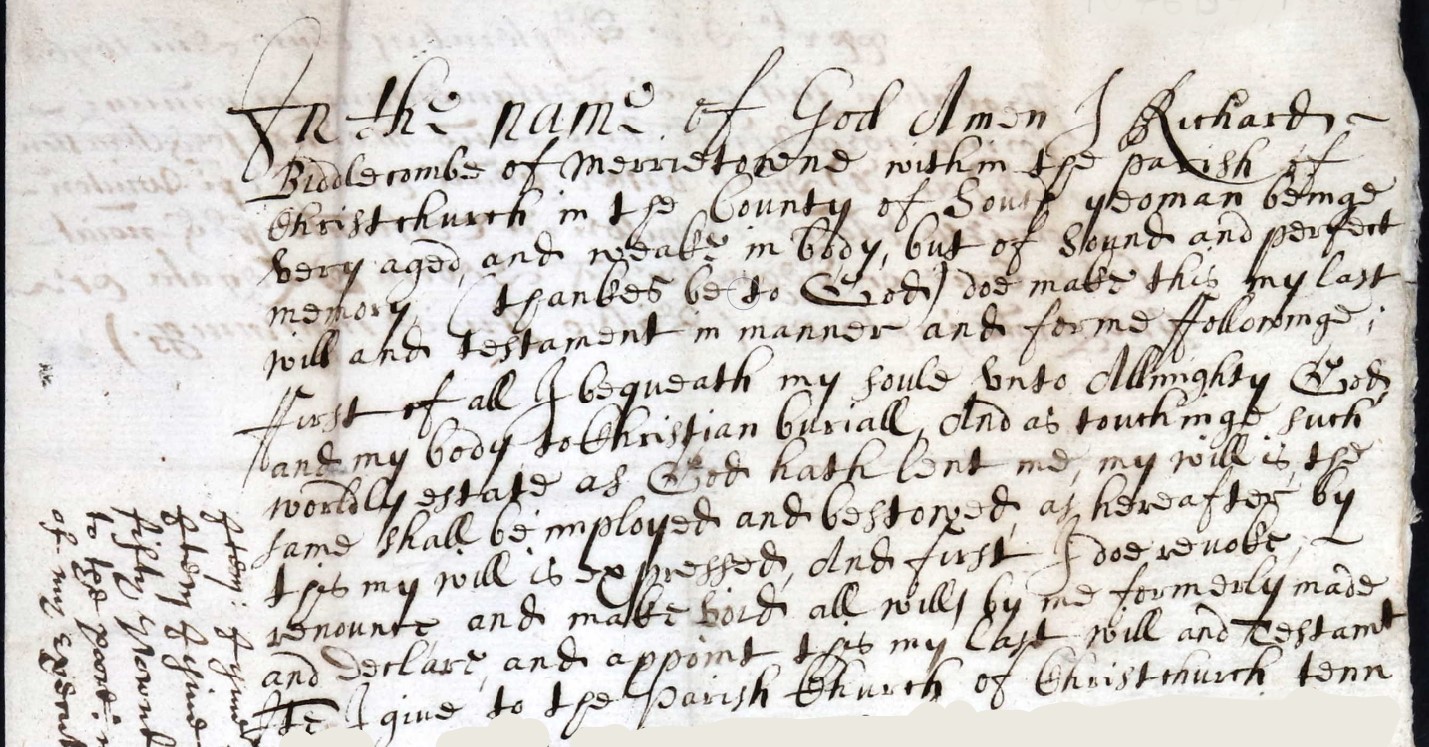 In the name of God Amen I Richard
Biddlecombe of Merrietowne within the parish of
Christchurch in the County of South yeoman beinge
very aged and weake in body, but of sound and perfect
memory (thankes be to God) doe make this my last
will and testament in manner and forme ffollowinge;
ffirst of all I bequeath my soule vnto Allmighty God
and my body to Christian buriall, And as touchinge such
worldly estate as God hath lent me, my will is the
same shall be imployed and bestowed, as hereafter by
this my will is expressed, And first I doe revoke,
renounce and make void all wills by me formerly made
and declare, and appoint this my last will and Testamt
Ite I give to the parish Church of Christchurch tenn
Item
Item
fifty
to the
of my